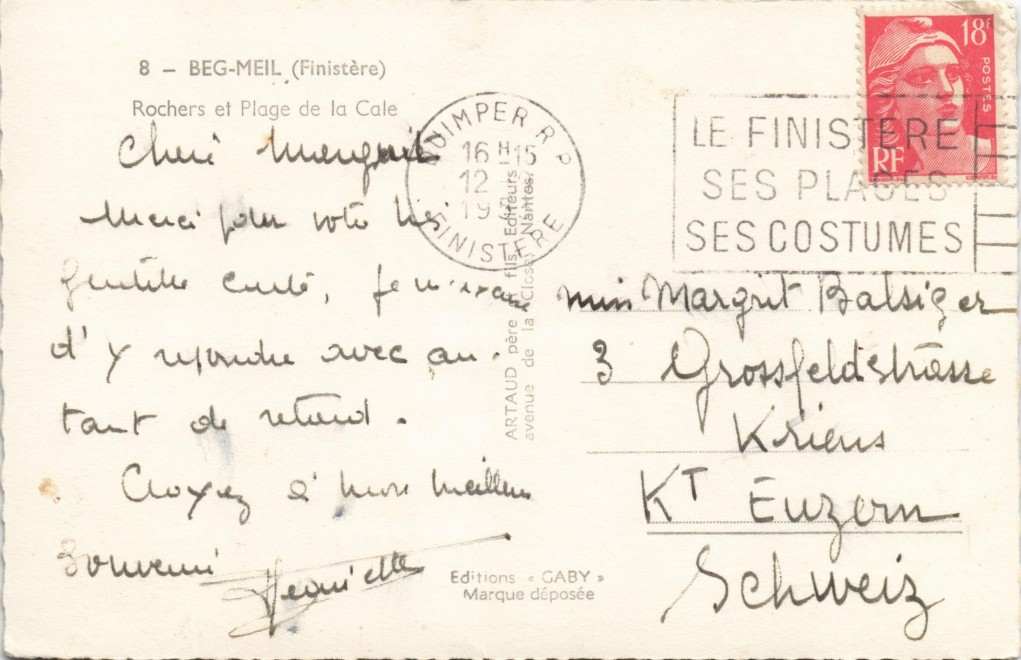 8 – BEG-MEIL (Finistère)
Rochers et Plage de la Cale
Cheri Margrit
Merci pour votre très
gentille carte, je m'excuse
d'y repondre avec au-
tant de retard.
Croyez à mon meilleur
Souvenir
ARTAUD père & fils, Editeurs
avenue de la Close, Nantes
Editions « GABY »
Marque déposée
QUIMPER R P
16 H 15
12
19
FINISTERE
LE FINISTERE
SES PLAGES
SES COSTUMES
18F
POSTES
RF
miss Margrit Balsiger
3 Grossfeldstrasse
Kriens
KT Luzern
Schweiz